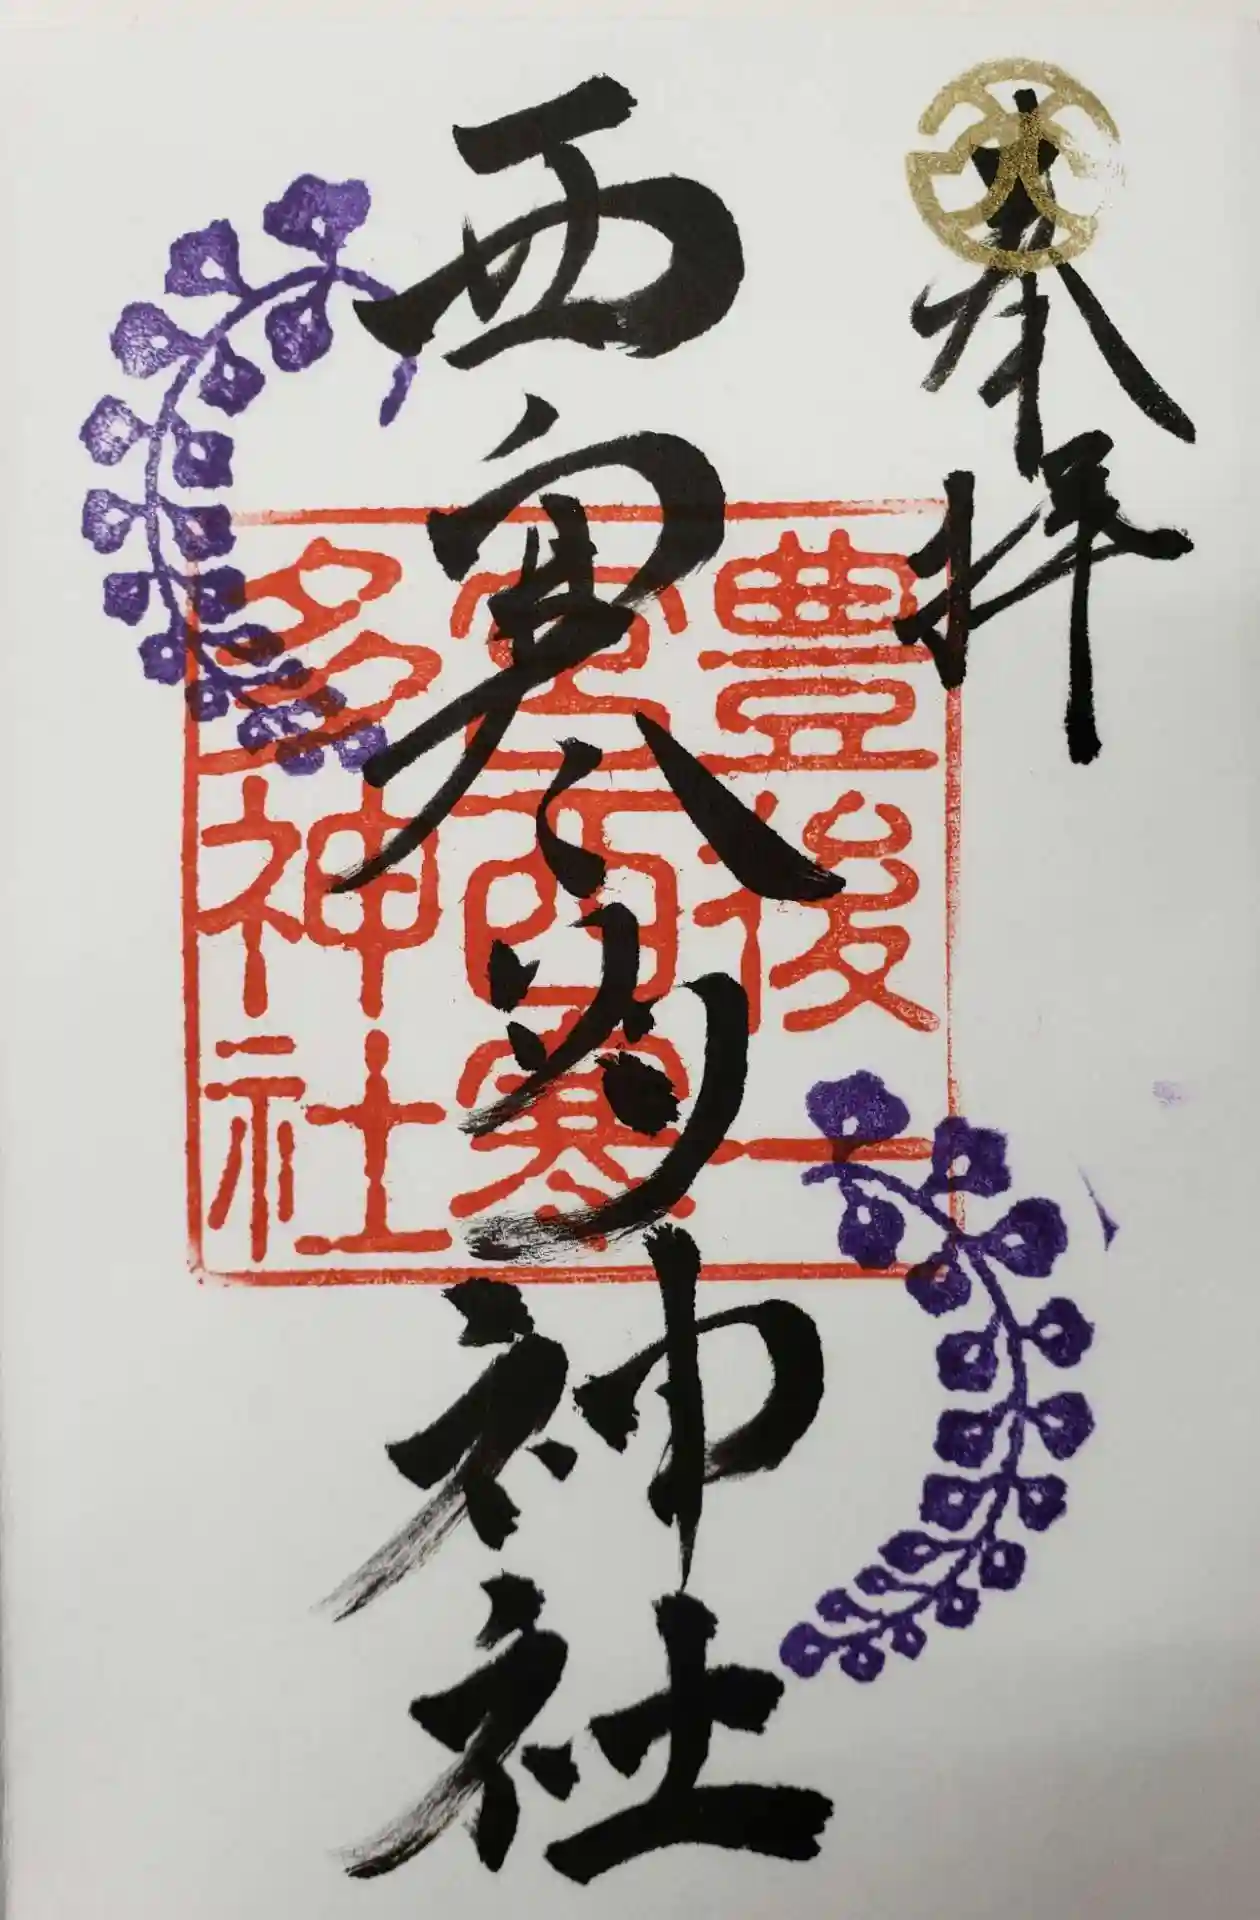 奉拝
西寒多神社
豊後一
宮西寒
多神社